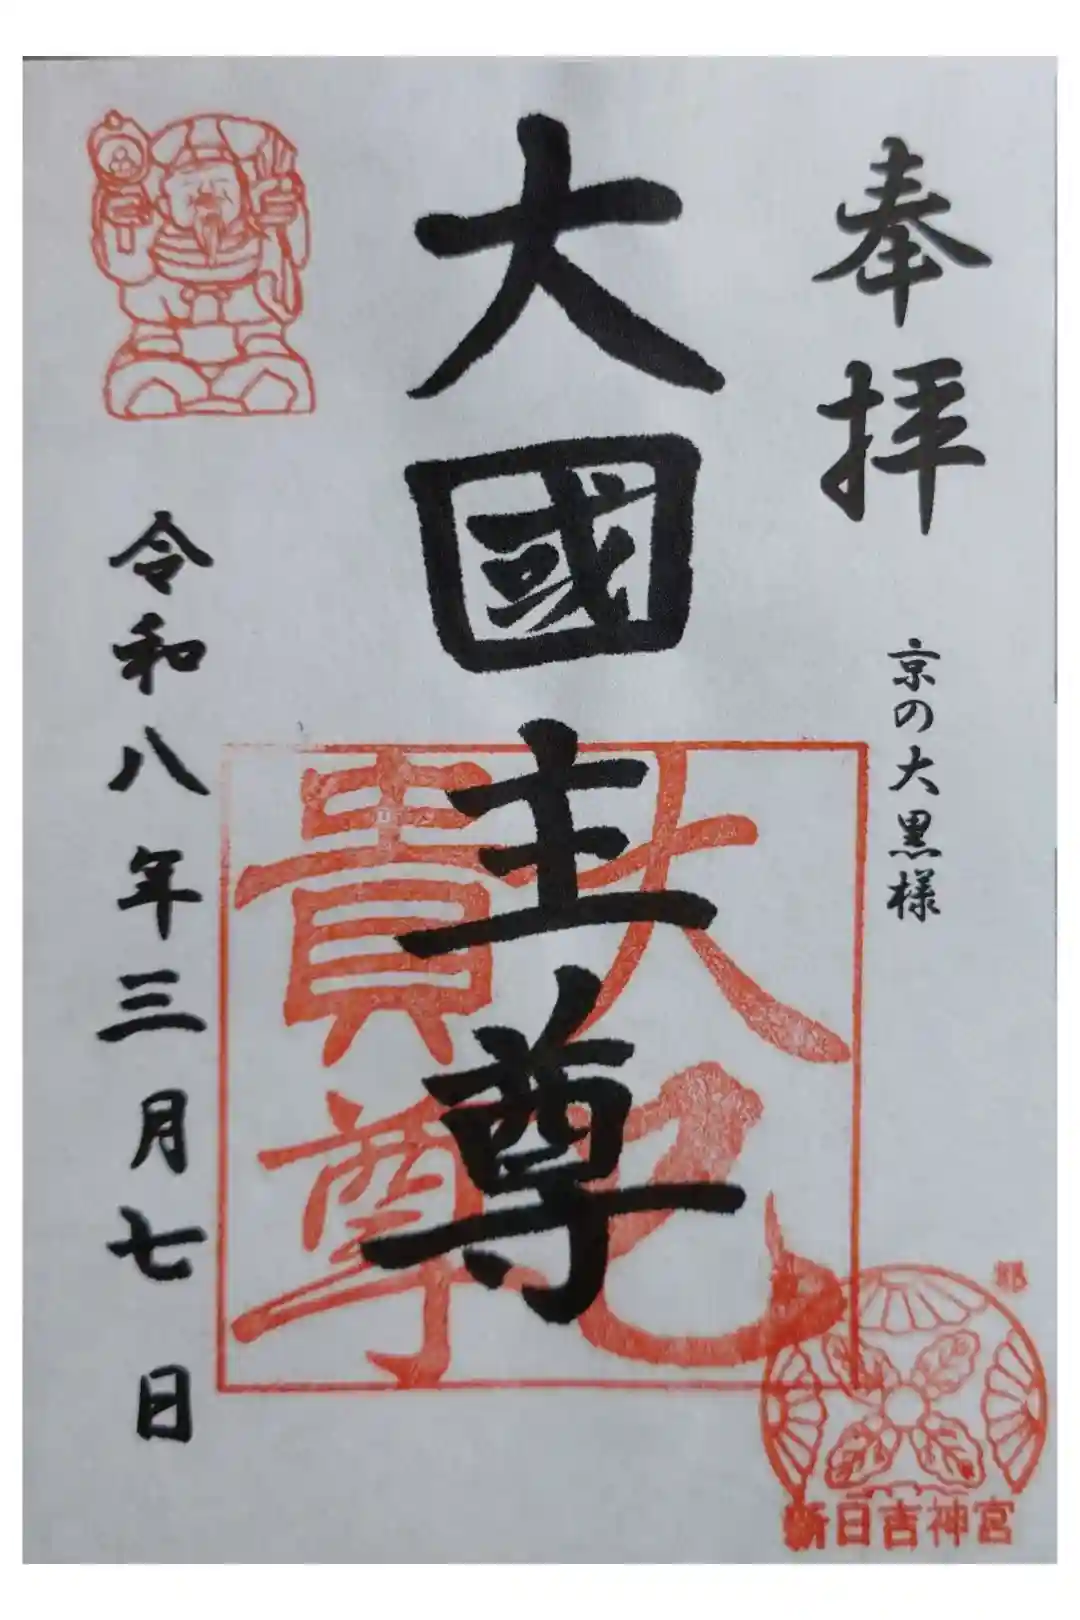 奉拝
京の大黒様
大國主尊
大己
貴尊
令和八年三月七日
新日吉神宮